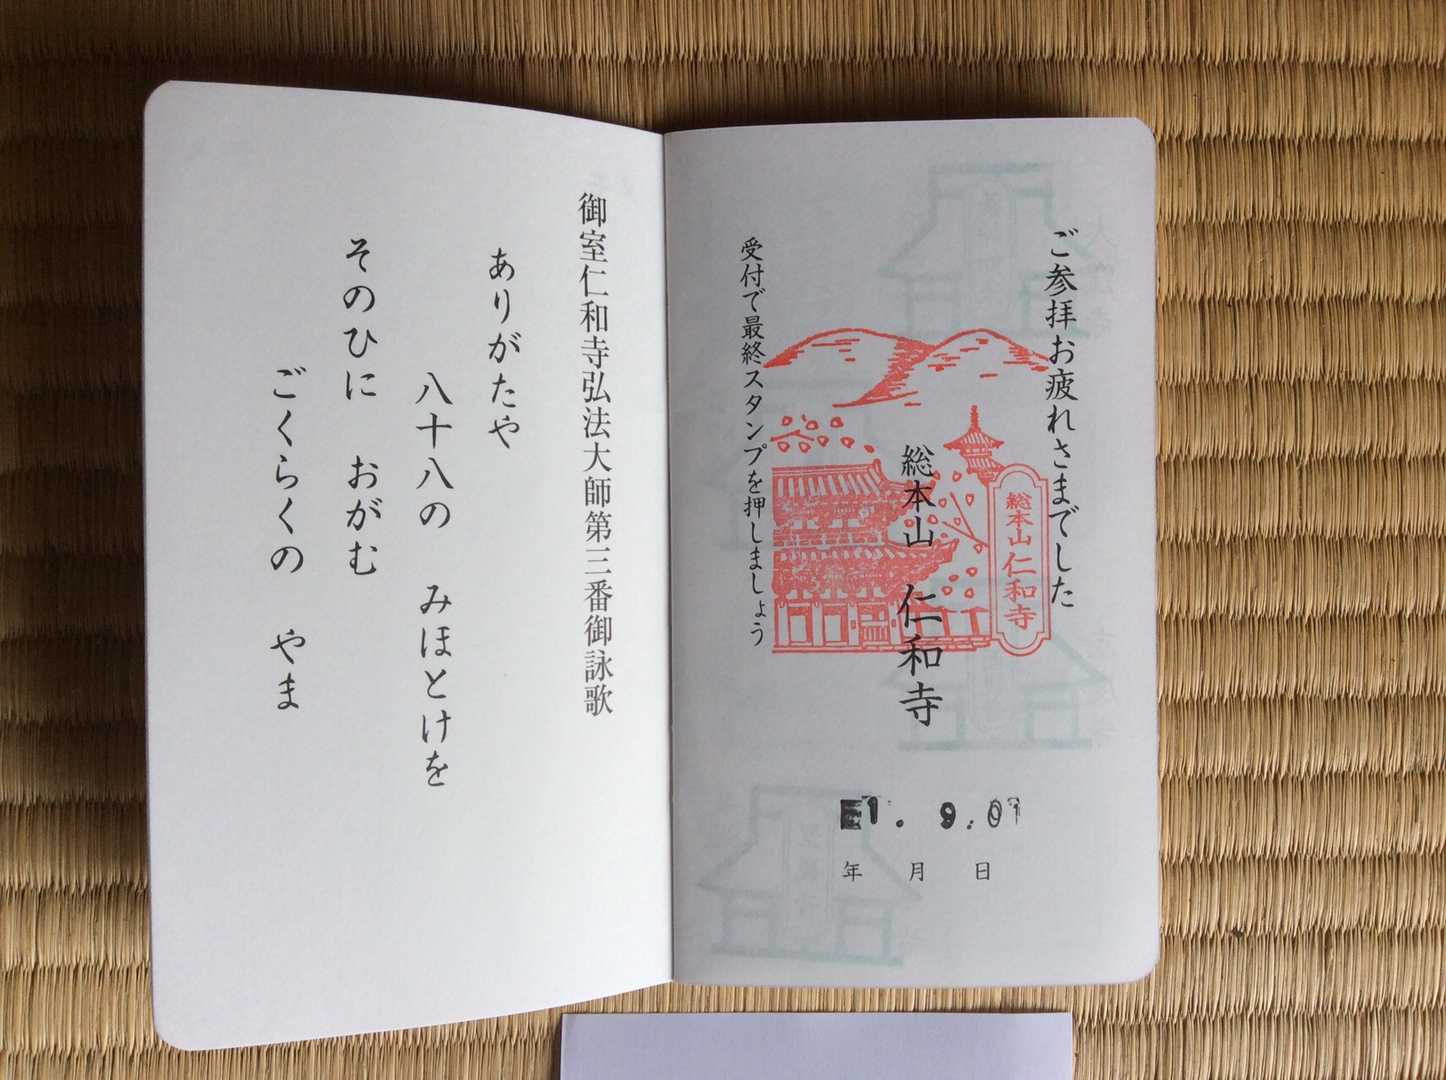 ご参拝お疲れさまでした
総本山 仁和寺
総本山仁和寺
受付で最終スタンプを押しましょう
1. 9.01
年 月 日
御室仁和寺弘法大師第三番御詠歌
ありがたや
八十八の みほとけを
そのひに おがむ
ごくらくの やま